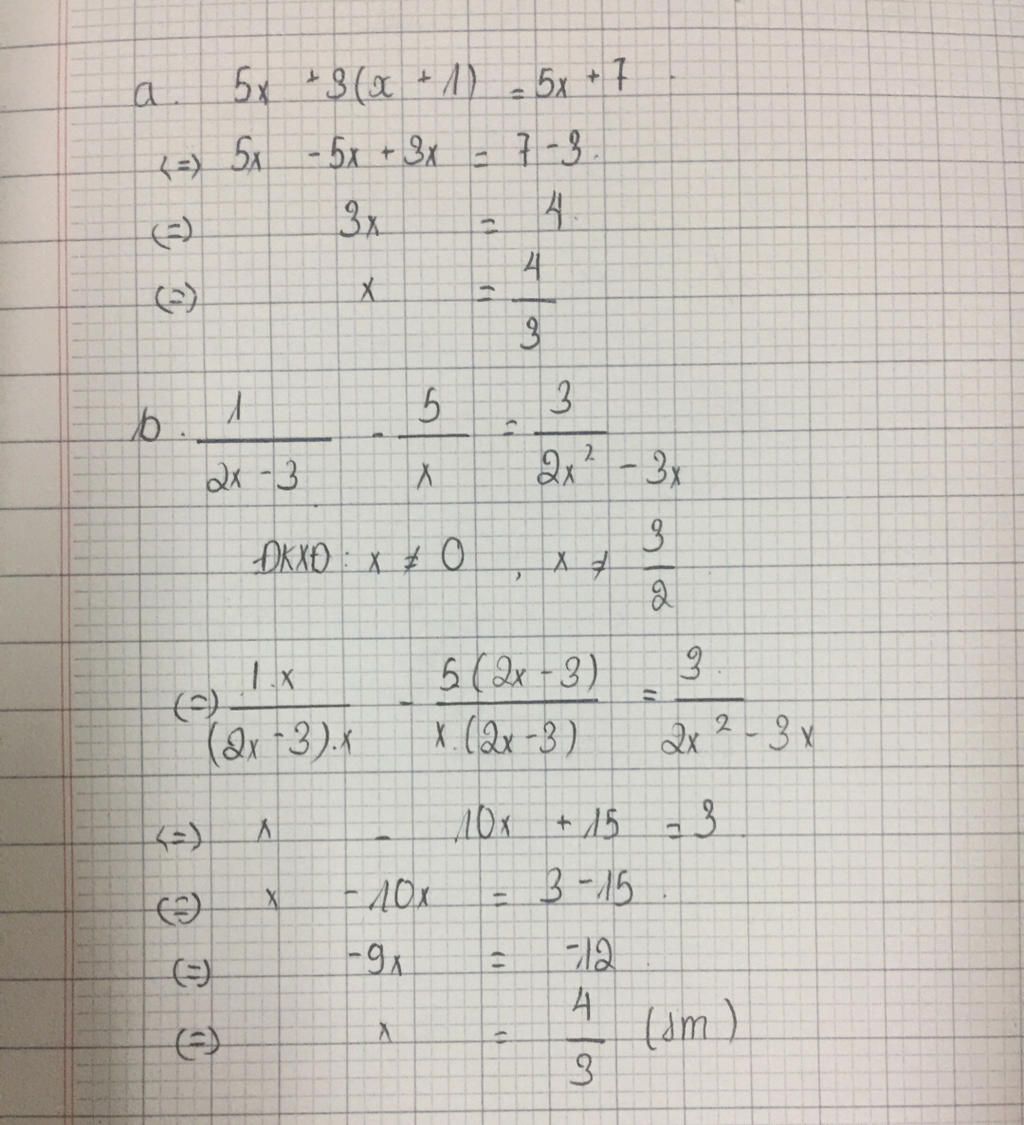 a. 5x + 3(x + 1) = 5x + 7
(=) 5x - 5x + 3x = 7 - 3.
(=) 3x = 4
(=) x = 4/3
b. 1/(2x - 3) - 5/x = 3/(2x² - 3x)
ĐKXĐ: x ≠ 0, x ≠ 3/2
(=) 1.x/((2x - 3).x) - 5(2x - 3)/(x.(2x - 3)) = 3/(2x² - 3x)
(=) x - 10x + 15 = 3
(=) x - 10x = 3 - 15.
(=) -9x = -12
(=) x = 4/3 (tm)